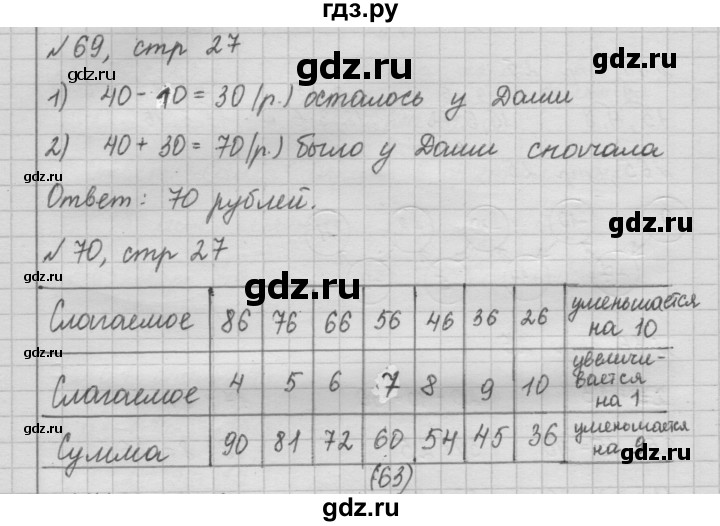 гдз.ру
№ 69, стр 27
gdz.ru
1) 40 - 10 = 30 (р.) осталось у Даши
2) 40 + 30 = 70 (р.) было у Даши сночала
Ответ: 70 рублей.
№ 70, стр 27
Слагаемое 86 76 66 56 46 36 26 уменьшается на 10
Слагаемое 4 5 6 7 8 9 10 увеличивается на 1
Сумма 90 81 72 60 54 45 36 уменьшается на 9
(63)
gdz.ru